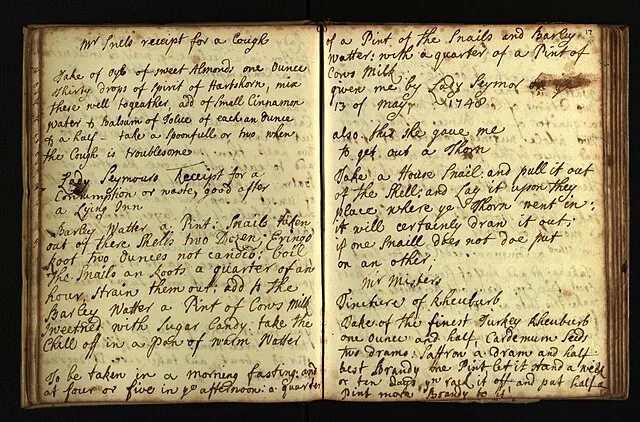 Mr Snels receipt for a Cough
Take of oyle of sweet Almonds one Ounce
thirty drops of spirit of Hartshorn, mix
these well togeather, add of Smell Cinnamon
water & Balsum of Tolue of each an Ounce
& a half - take a spoonfull or two when
the Cough is troublesome
Lady Seymours Receipt for a
Consumption or waste, good after
a Lying Inn
Barley Watter a Pint: Snails taken
out of there Shells two Dozen; Eringo
root two Ounces not candied: boil
the Snails an Roots a quarter of an
hour, Strain them out; add to the
Barley Watter a Pint of Cows Milk
sweetned with Sugar Candy: take the
Chill off in a Pon of warm Watter
To be taken in a morning fasting: and
at four or five in ye afternoon: a quarter
17
of a Pint of the Snails and Barley
watter: with a quarter of a Pint of
Cows Milk
given me by Lady Seymor
13 of may 1748
also this she gave me
to get out a Thorn
Take a House Snail and pull it out
of the Shell: and Lay it upon they
place, where ye Thorn went in:
it will certainly draw it out,
if one Snaill does not doe put
on an other.
Mr
Tincture of Rheuburb
Take of the finest Turkey Rheuburb
one Ounce and half Cardemum Seeds
two drams: Saffron a dram and half
best Brandy one Pint let it stand a week
or ten days yn rack it off and put half a
pint more Brandy to it